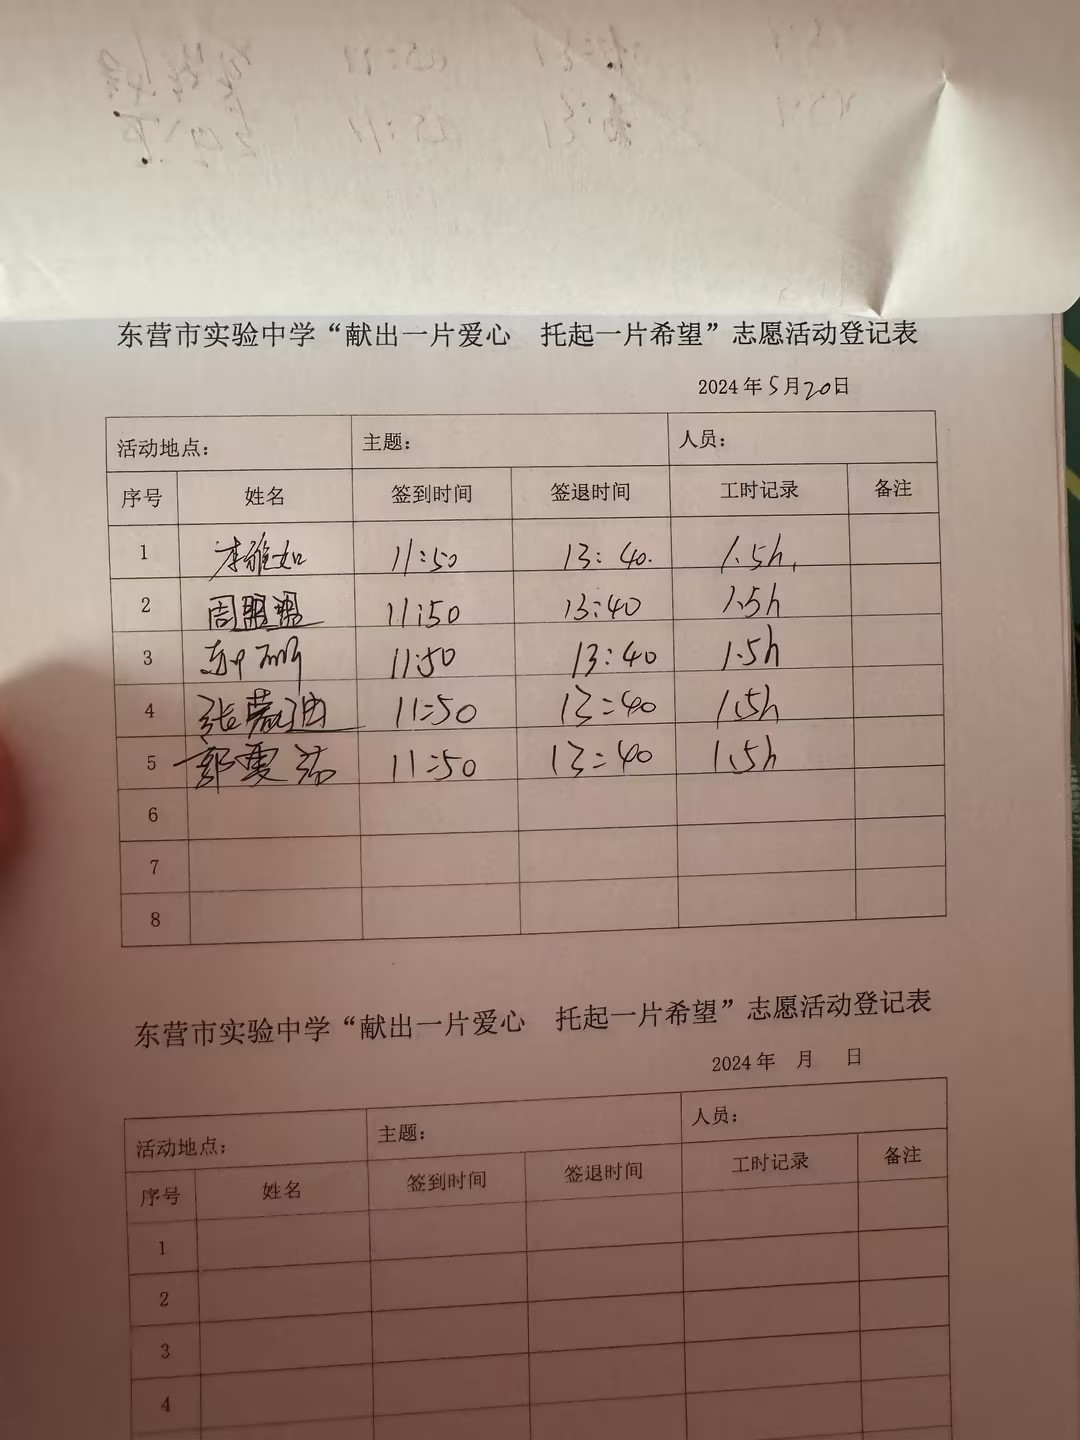 东营市实验中学“献出一片爱心　托起一片希望”志愿活动登记表
2024年5月20日
活动地点： 主题： 人员：
序号 姓名 签到时间 签退时间 工时记录 备注
1 李雅如 11:50 13:40. 1.5h,
2 周 11:50 13:40 1.5h
3 11:50 13:40 1.5h
4 张 迪 11:50 13:40 1.5h
5 郭雯 11:50 13:40 1.5h
6
7
8
东营市实验中学“献出一片爱心　托起一片希望”志愿活动登记表
2024年　月　日
活动地点： 主题： 人员：
序号 姓名 签到时间 签退时间 工时记录 备注
1
2
3
4